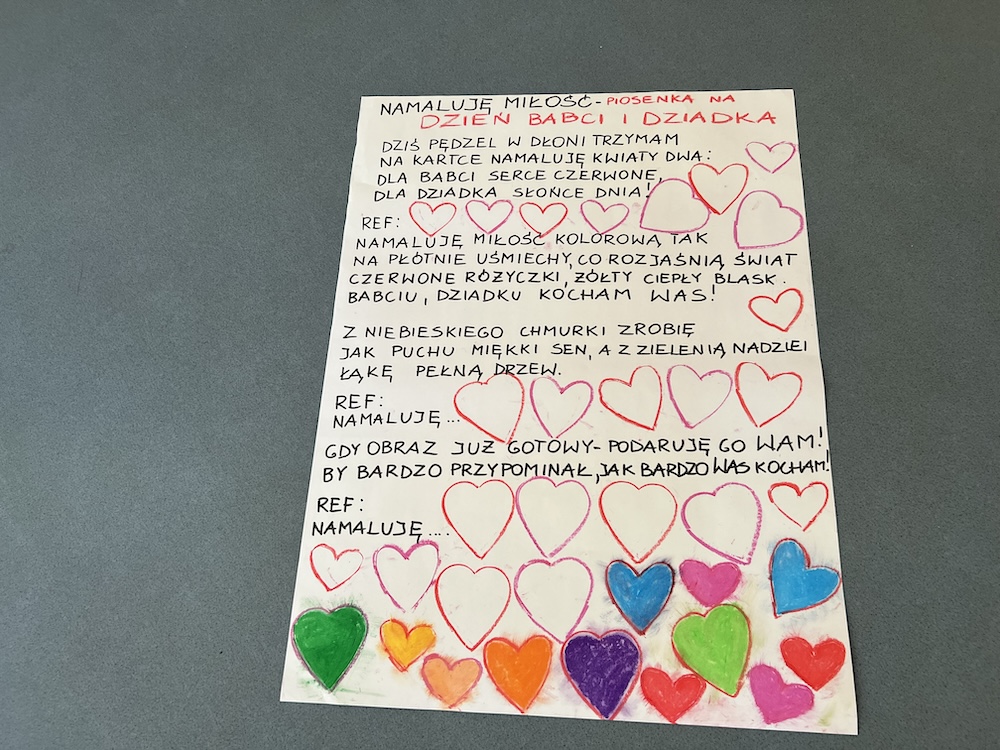 NAMALUJĘ MIŁOŚĆ - PIOSENKA NA
DZIEŃ BABCI I DZIADKA
DZIŚ PĘDZEL W DŁONI TRZYMAM
NA KARTCE NAMALUJĘ KWIATY DWA:
DLA BABCI SERCE CZERWONE,
DLA DZIADKA SŁOŃCE DNIA!
REF:
NAMALUJĘ MIŁOŚĆ KOLOROWĄ TAK
NA PŁÓTNIE UŚMIECHY, CO ROZJAŚNIĄ ŚWIAT
CZERWONE RÓŻYCZKI, ŻÓŁTY CIEPŁY BLASK.
BABCIU, DZIADKU KOCHAM WAS!
Z NIEBIESKIEGO CHMURKI ZROBIĘ
JAK PUCHU MIĘKKI SEN, A Z ZIELENIĄ NADZIEI
ŁĄKĘ PEŁNĄ DRZEW.
REF:
NAMALUJĘ...
GDY OBRAZ JUŻ GOTOWY - PODARUJĘ GO WAM!
BY BARDZO PRZYPOMINAŁ, JAK BARDZO WAS KOCHAM!
REF:
NAMALUJĘ....